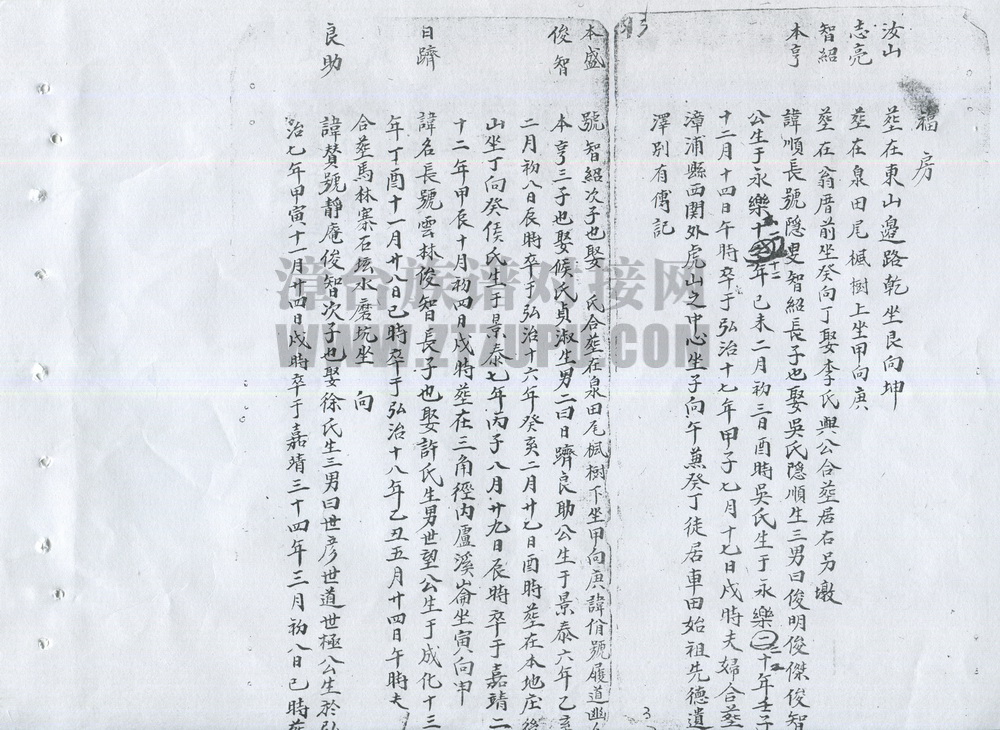 福房
汝山 葬在東山邊路乾坐艮向坤
志亮 葬在泉田尾楓樹上坐甲向庚
智紹 葬在翁厝前坐癸向丁娶李氏與公合葬居右另墩
本亨 諱順長號隱叟智紹長子也娶吳氏隱順生三男曰俊明俊傑俊智
公生于永樂十年己未二月初三日酉時吳氏生于永樂二十年壬子
十二月十四日午時卒于弘治十七年甲子七月十七日戌時夫婦合葬
漳浦縣西関外虎山之中心坐子向午兼癸丁徒居車田始祖先德遺
澤別有傳記
本盛 號智紹次子也娶 氏合葬在泉田尾楓樹下坐甲向庚諱偝號履道幽
俊智 本亨三子也娶候氏貞淑生男二曰日躋良助公生于景泰六年乙亥
二月初八日辰時卒于弘治十六年癸亥二月廿七日酉時葬在本地庄後
山坐丁向癸侯氏生于景泰七年丙子八月廿九日辰時卒于嘉靖二
十二年甲辰十月初四日戌時葬在三角徑内盧溪崙坐寅向申
日躋 諱名長號雲林俊智長子也娶許氏生男世望公生于成化十三
年丁酉十一月廿八日巳時卒于弘治十八年乙丑五月廿四日午時夫
合葬馬林寨石坛水磨坑坐 向
良助 諱賛號靜庵俊智次子也娶徐氏生三男曰世彦世道世極公生於弘
治七年甲寅十一月廿四日戌時卒于嘉靖三十四年三月初八日巳時葬
漳台族谱对接网
WWW.ZTZUPU.COM
3